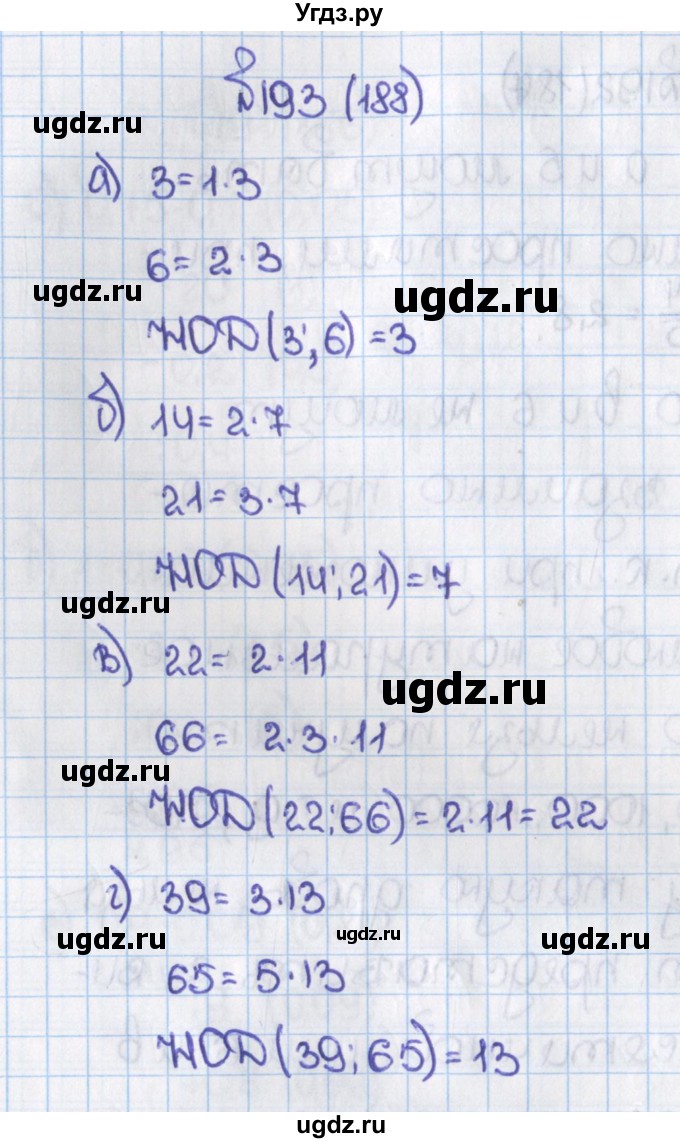 Угдз.ру
№193 (188)
ugdz.ru
а) 3=1·3
6=2·3
ugdz.ru
ugdz.ru
НОD(3;6)=3
б) 14=2·7
21=3·7
НОD(14;21)=7
ugdz.ru
в) 22=2·11
ugdz.ru
66=2·3·11
ugdz.ru
НОD(22;66)=2·11=22
г) 39=3·13
ugdz.ru
ugdz.ru
ugdz.ru
65=5·13
НОD(39;65)=13
ugdz.ru